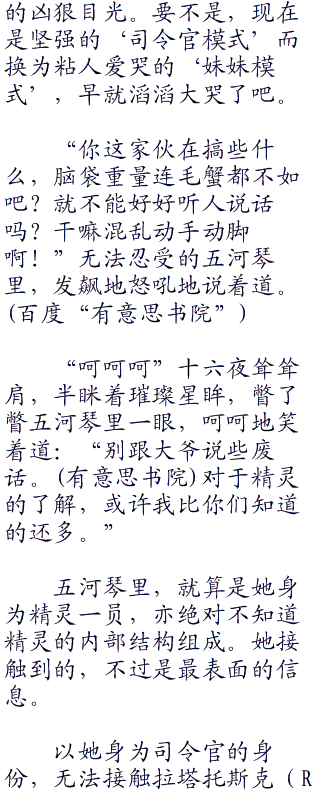 的凶狠目光。要不是，现在
是坚强的‘司令官模式’而
换为粘人爱哭的‘妹妹模
式’，早就滔滔大哭了吧。
“你这家伙在搞些什
么，脑袋重量连毛蟹都不如
吧？就不能好好听人说话
吗？干嘛混乱动手动脚
啊！”无法忍受的五河琴
里，发飙地怒吼地说着道。
(百度“有意思书院”)
“呵呵呵”十六夜耸耸
肩，半眯着璀璨星眸，瞥了
瞥五河琴里一眼，呵呵地笑
着道：“别跟大爷说些废
话。(有意思书院)对于精灵
的了解，或许我比你们知道
的还多。”
五河琴里，就算是她身
为精灵一员，亦绝对不知道
精灵的内部结构组成。她接
触到的，不过是最表面的信
息。
以她身为司令官的身
份，无法接触拉塔托斯克（R